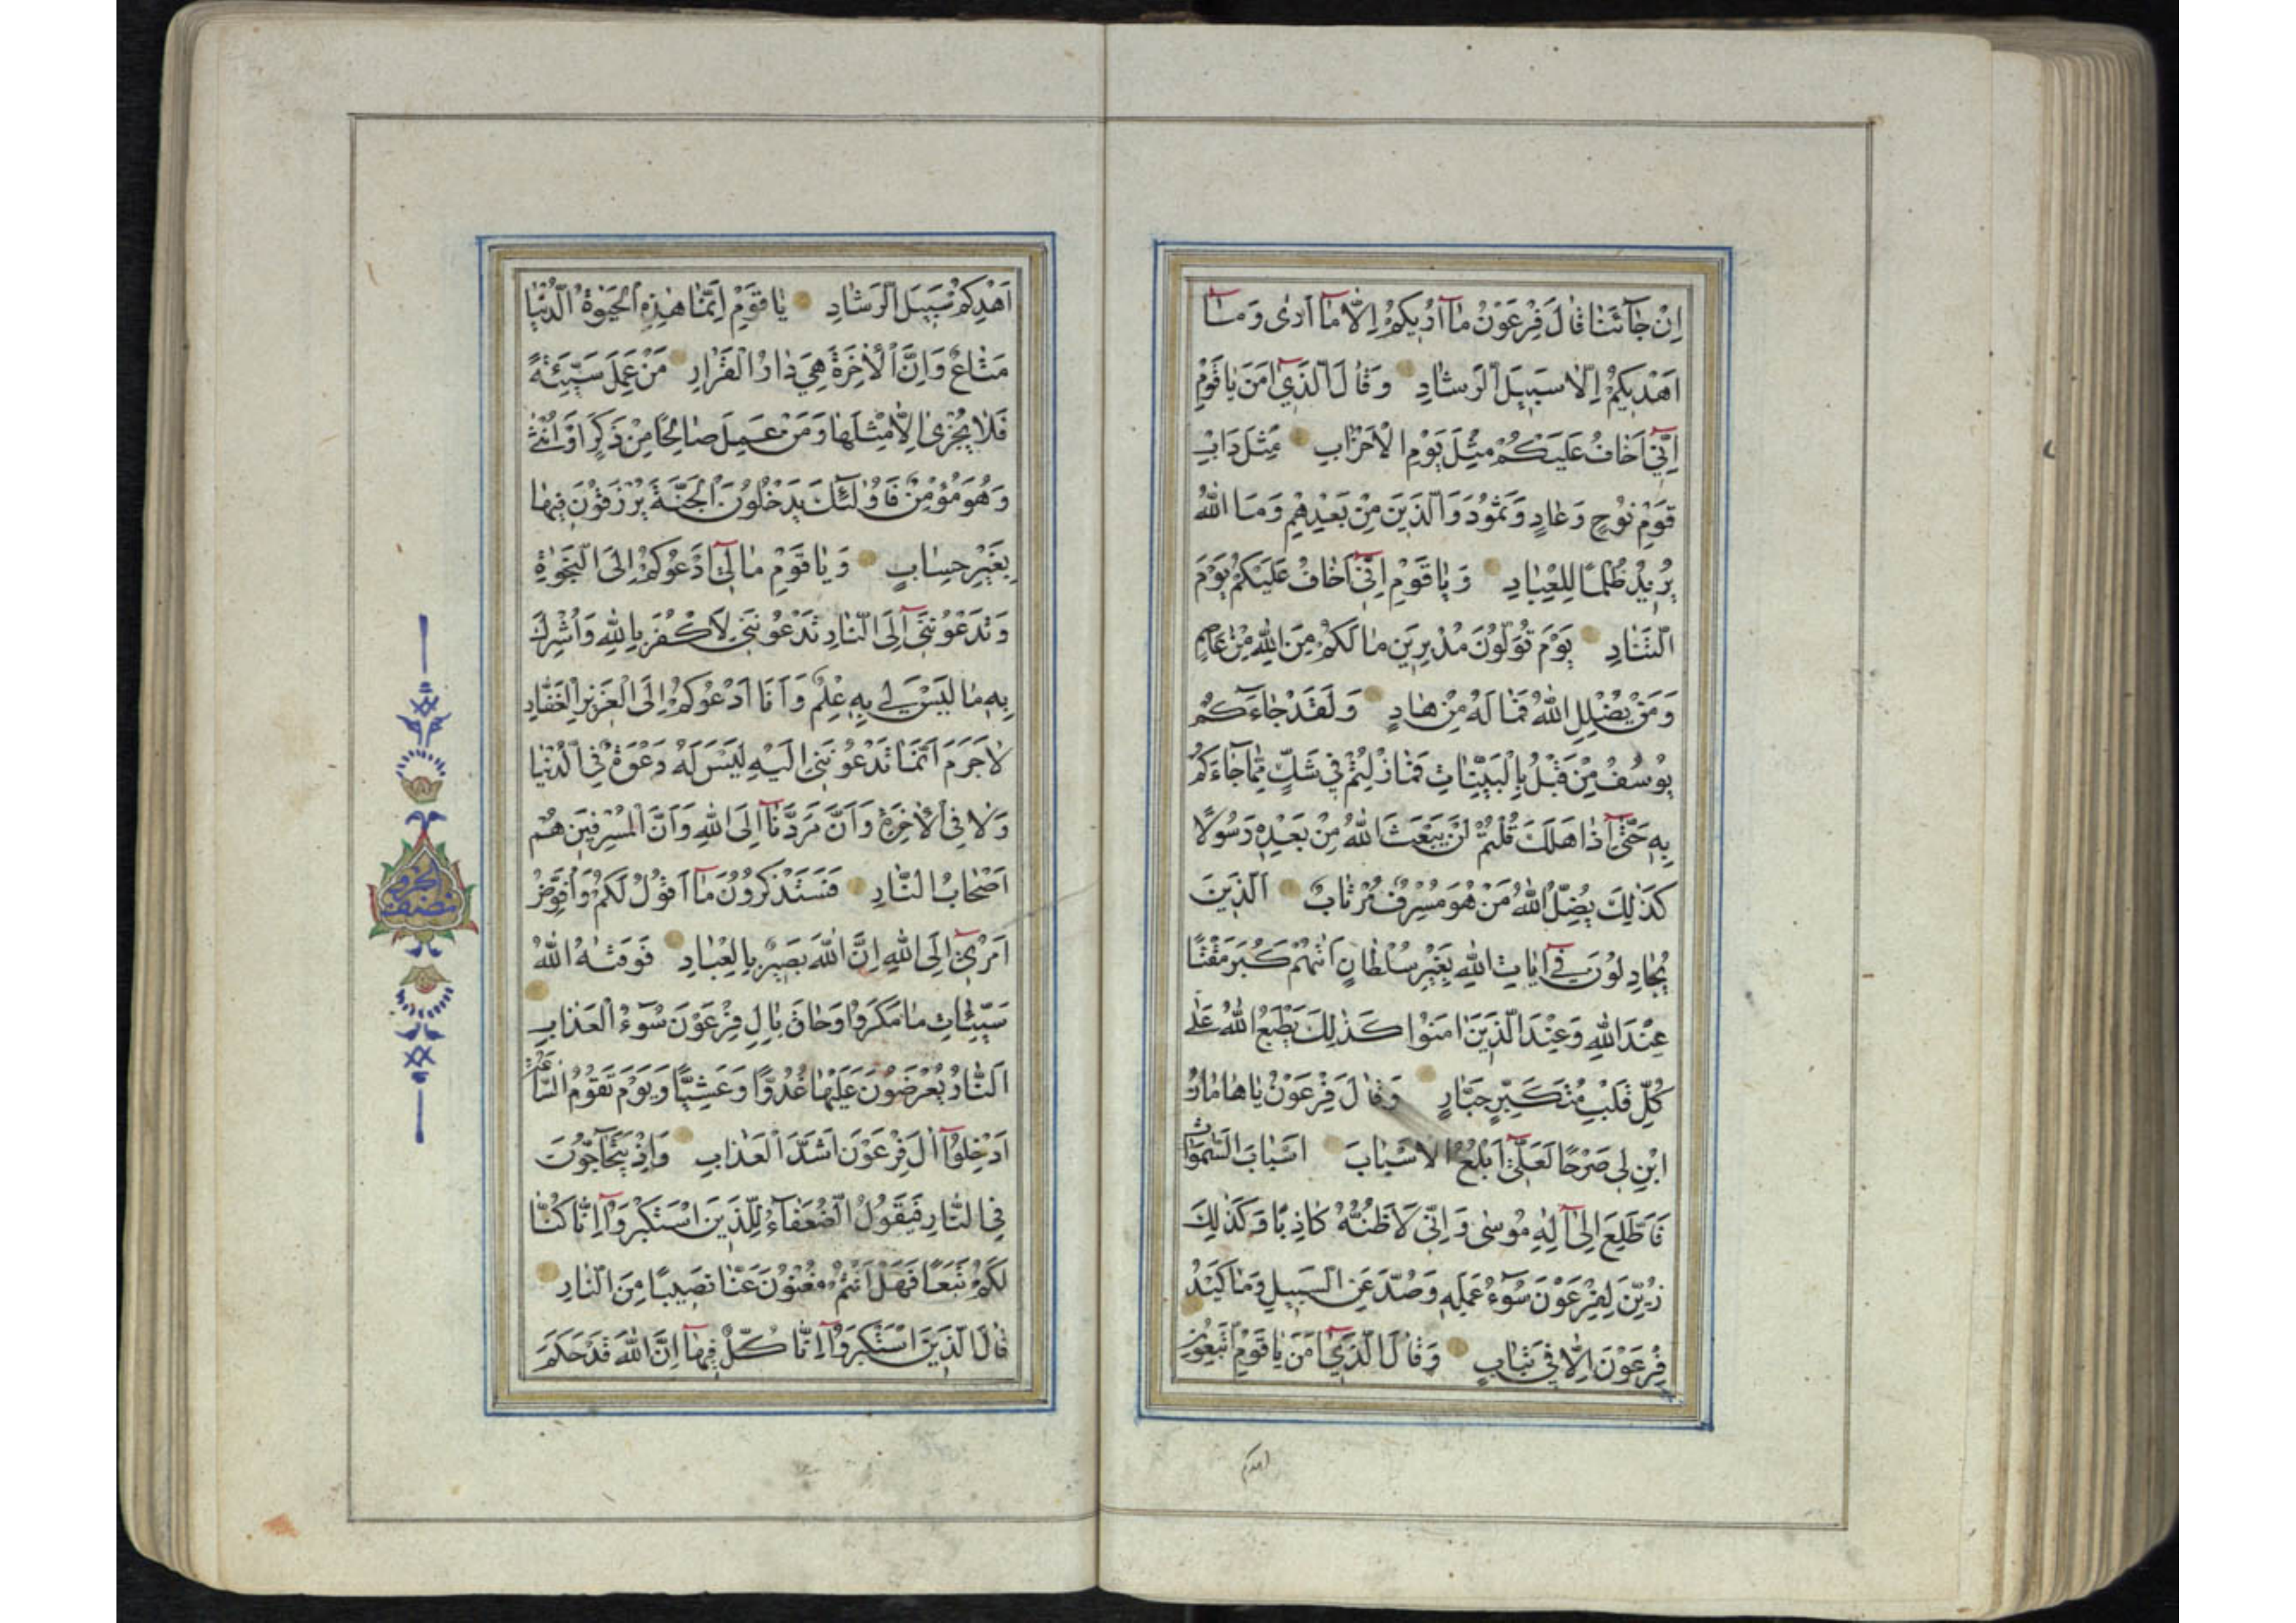 اِنْ جٰآئَنٰا قٰالَ فِرْعَوْنُ مٰآ اُرٖيكُمْ اِلّٰا مٰآ اَرٰى وَمٰآ
اَهْدٖيكُمْ اِلّٰا سَبٖيلَ الرَّشٰادِ وَقٰالَ الَّذٖيٓ اٰمَنَ يٰا قَوْمِ
اِنّٖيٓ اَخٰافُ عَلَيْكُمْ مِثْلَ يَوْمِ الْاَحْزٰابِ مِثْلَ دَاْبِ
قَوْمِ نُوحٍ وَعٰادٍ وَثَمُودَ وَالَّذٖينَ مِنْ بَعْدِهِمْ وَمَا اللّٰهُ
يُرٖيدُ ظُلْمًا لِلْعِبٰادِ وَيٰا قَوْمِ اِنّٖيٓ اَخٰافُ عَلَيْكُمْ يَوْمَ
التَّنٰادِ يَوْمَ تُوَلُّونَ مُدْبِرٖينَ مٰا لَكُمْ مِنَ اللّٰهِ مِنْ عٰاصِمٍ
وَمَنْ يُضْلِلِ اللّٰهُ فَمٰا لَهُ مِنْ هٰادٍ وَلَقَدْ جٰاءَكُمْ
يُوسُفُ مِنْ قَبْلُ بِالْبَيِّنٰاتِ فَمٰا زِلْتُمْ فٖي شَكٍّ مِمّٰا جٰاءَكُمْ
بِهٖ حَتّٰىٓ اِذٰا هَلَكَ قُلْتُمْ لَنْ يَبْعَثَ اللّٰهُ مِنْ بَعْدِهٖ رَسُولًا
كَذٰلِكَ يُضِلُّ اللّٰهُ مَنْ هُوَ مُسْرِفٌ مُرْتٰابٌ اَلَّذٖينَ
يُجٰادِلُونَ فٖيٓ اٰيٰاتِ اللّٰهِ بِغَيْرِ سُلْطٰانٍ اَتٰيهُمْ كَبُرَ مَقْتًا
عِنْدَ اللّٰهِ وَعِنْدَ الَّذٖينَ اٰمَنُوا كَذٰلِكَ يَطْبَعُ اللّٰهُ عَلٰى
كُلِّ قَلْبِ مُتَكَبِّرٍ جَبّٰارٍ وَقٰالَ فِرْعَوْنُ يٰا هٰامٰانُ
ابْنِ لٖي صَرْحًا لَعَلّٖيٓ اَبْلُغُ الْاَسْبٰابَ اَسْبٰابَ السَّمٰوٰاتِ
فَاَطَّلِعَ اِلٰىٓ اِلٰهِ مُوسٰى وَاِنّٖي لَاَظُنُّهُ كٰاذِبًا وَكَذٰلِكَ
زُيِّنَ لِفِرْعَوْنَ سُوٓءُ عَمَلِهٖ وَصُدَّ عَنِ السَّبٖيلِ وَمٰا كَيْدُ
فِرْعَوْنَ اِلّٰا فٖي تَبٰابٍ وَقٰالَ الَّذٖيٓ اٰمَنَ يٰا قَوْمِ اتَّبِعُونِ
اهدكم
اَهْدِكُمْ سَبٖيلَ الرَّشٰادِ يٰا قَوْمِ اِنَّمٰا هٰذِهِ الْحَيٰوةُ الدُّنْيٰا
مَتٰاعٌ وَاِنَّ الْاٰخِرَةَ هِيَ دٰارُ الْقَرٰارِ مَنْ عَمِلَ سَيِّئَةً
فَلٰا يُجْزٰىٓ اِلّٰا مِثْلَهٰا وَمَنْ عَمِلَ صٰالِحًا مِنْ ذَكَرٍ اَوْ اُنْثٰى
وَهُوَ مُؤْمِنٌ فَاُولٰٓئِكَ يَدْخُلُونَ الْجَنَّةَ يُرْزَقُونَ فٖيهٰا
بِغَيْرِ حِسٰابٍ وَيٰا قَوْمِ مٰا لٖيٓ اَدْعُوكُمْ اِلَى النَّجٰوةِ
وَتَدْعُونَنٖيٓ اِلَى النّٰارِ تَدْعُونَنٖي لِاَكْفُرَ بِاللّٰهِ وَاُشْرِكَ
بِهٖ مٰا لَيْسَ لٖي بِهٖ عِلْمٌ وَاَنَا اَدْعُوكُمْ اِلَى الْعَزٖيزِ الْغَفّٰارِ
لٰا جَرَمَ اَنَّمٰا تَدْعُونَنٖي اِلَيْهِ لَيْسَ لَهُ دَعْوَةٌ فِي الدُّنْيٰا
وَلٰا فِي الْاٰخِرَةِ وَاَنَّ مَرَدَّنٰآ اِلَى اللّٰهِ وَاَنَّ الْمُسْرِفٖينَ هُمْ
اَصْحٰابُ النّٰارِ فَسَتَذْكُرُونَ مٰآ اَقُولُ لَكُمْ وَاُفَوِّضُ
اَمْرٖيٓ اِلَى اللّٰهِ اِنَّ اللّٰهَ بَصٖيرٌ بِالْعِبٰادِ فَوَقٰيهُ اللّٰهُ
سَيِّئٰاتِ مٰا مَكَرُوا وَحٰاقَ بِاٰلِ فِرْعَوْنَ سُوٓءُ الْعَذٰابِ
اَلنّٰارُ يُعْرَضُونَ عَلَيْهٰا غُدُوًّا وَعَشِيًّا وَيَوْمَ تَقُومُ السّٰاعَةُ
اَدْخِلُوٓا اٰلَ فِرْعَوْنَ اَشَدَّ الْعَذٰابِ وَاِذْ يَتَحٰآجُّونَ
فِي النّٰارِ فَيَقُولُ الضُّعَفٰٓاءُ لِلَّذٖينَ اسْتَكْبَرُوٓا اِنّٰا كُنّٰا
لَكُمْ تَبَعًا فَهَلْ اَنْتُمْ مُغْنُونَ عَنّٰا نَصٖيبًا مِنَ النّٰارِ
قٰالَ الَّذٖينَ اسْتَكْبَرُوٓا اِنّٰا كُلٌّ فٖيهٰآ اِنَّ اللّٰهَ قَدْ حَكَمَ
نصف الجزو